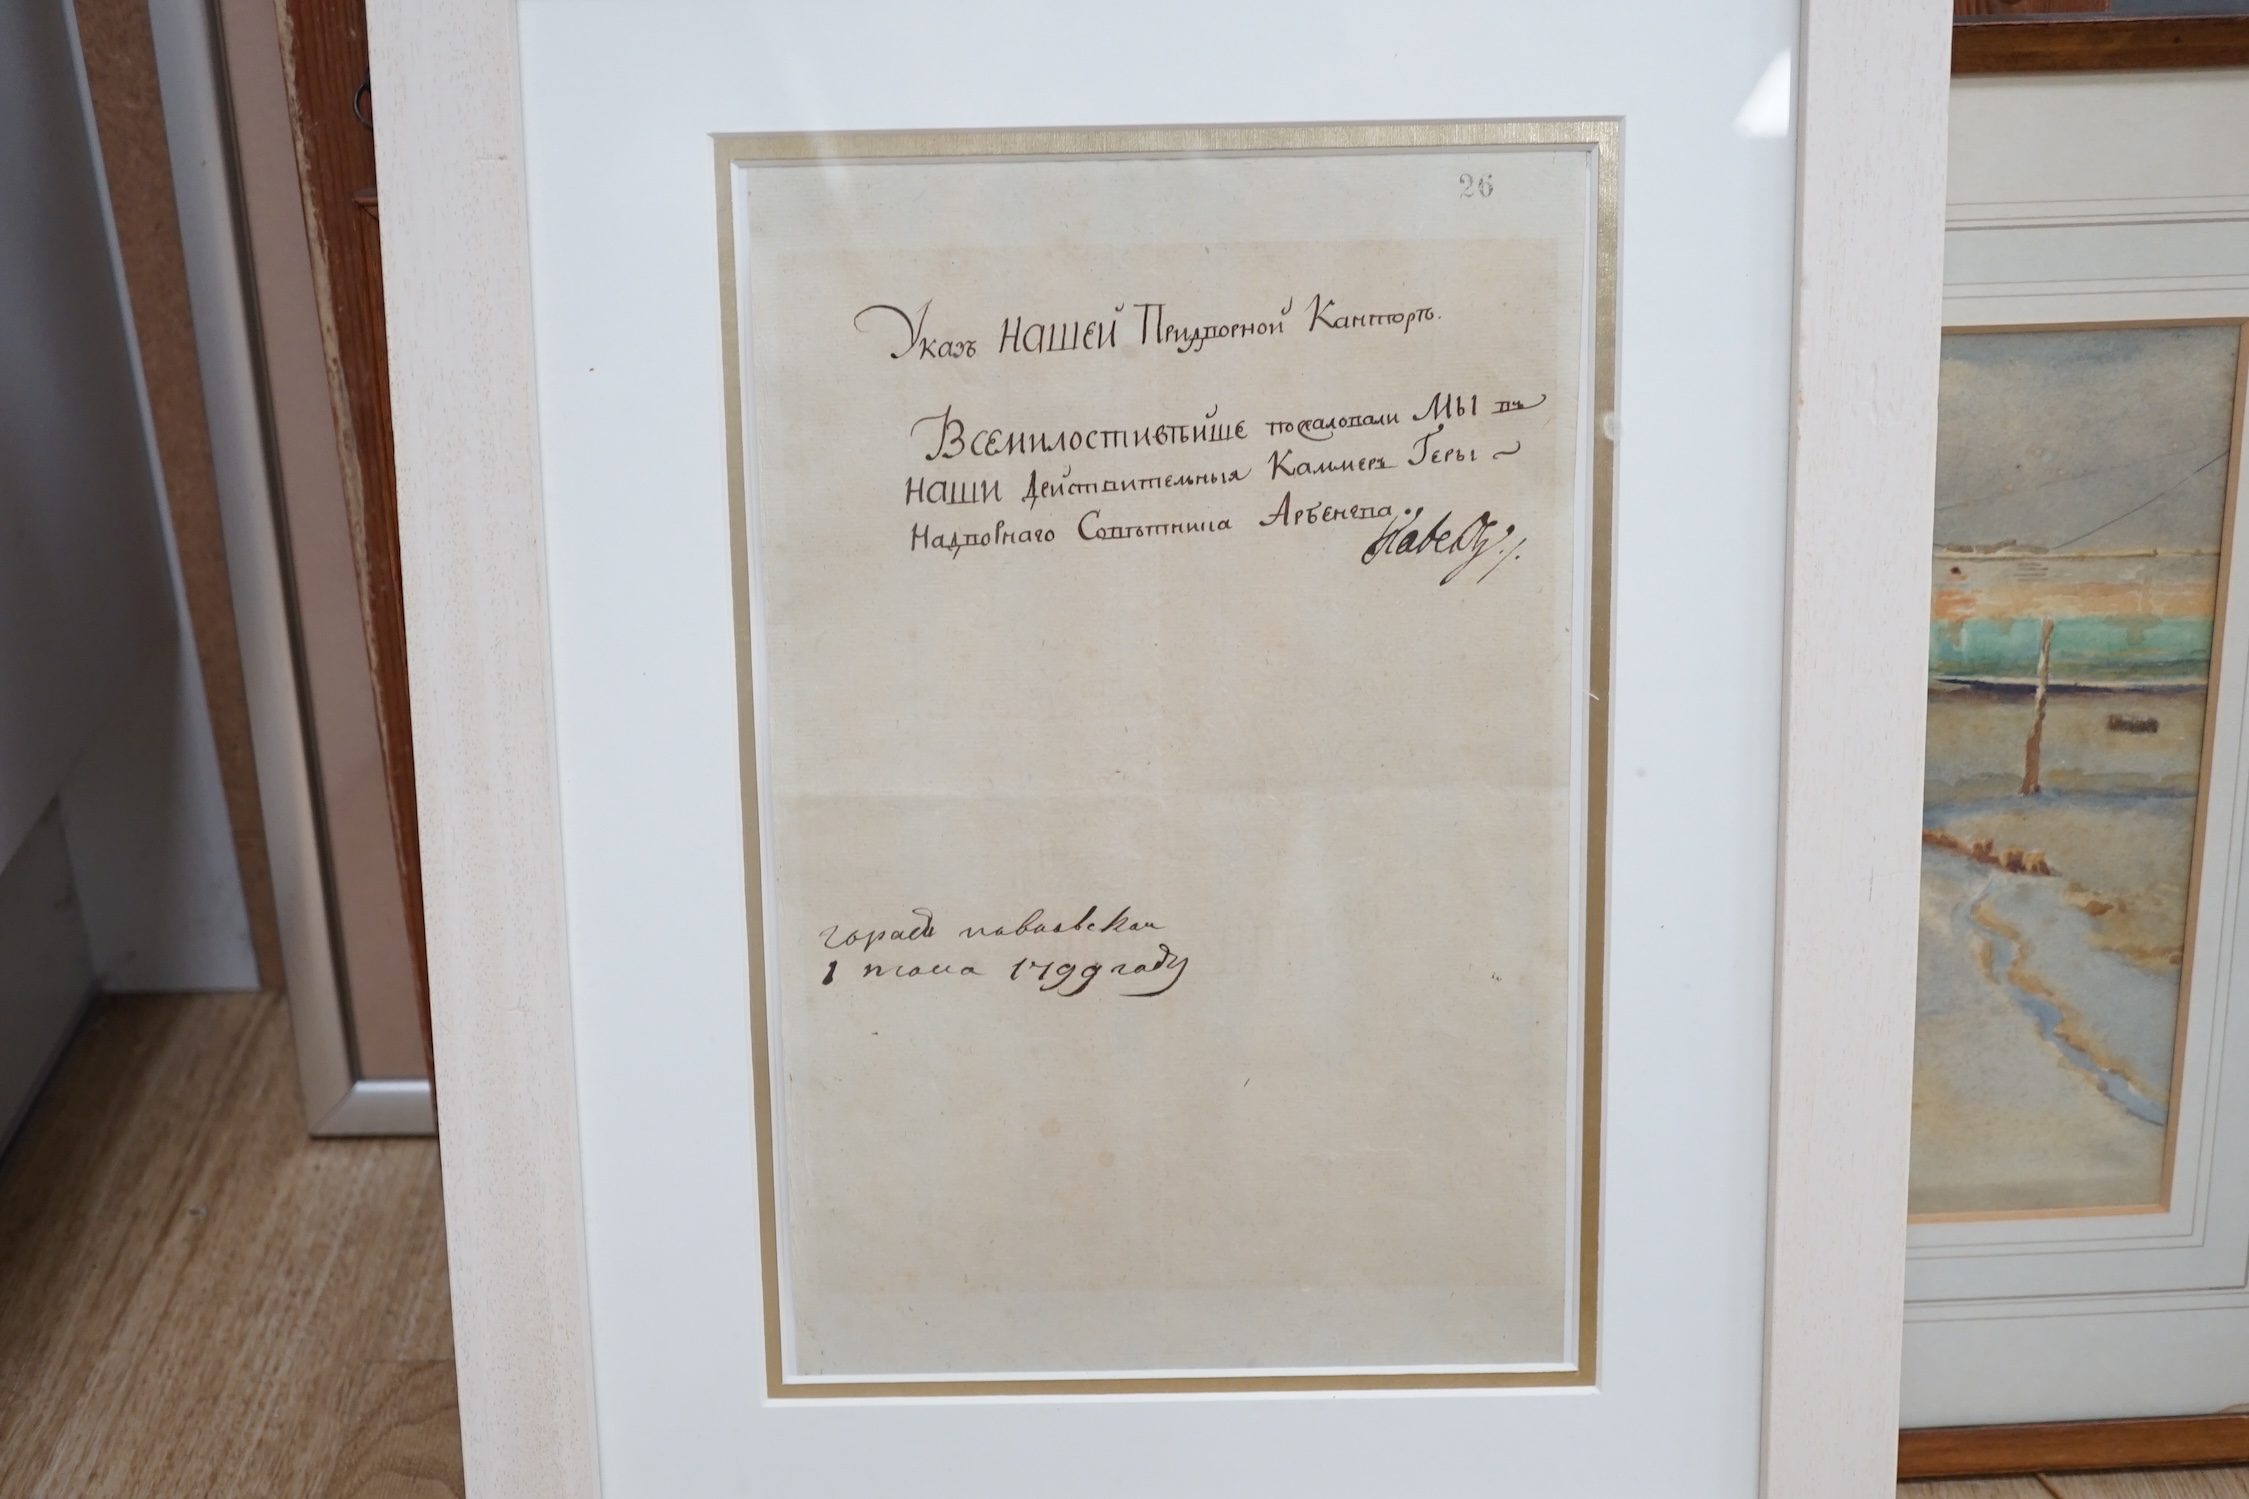 26
Указъ НАШЕЙ Придворной Канторѣ.
Всемилостивѣйше пожаловали МЫ въ
НАШИ Действительныя Каммеръ Геры
Надворнаго Совѣтника Арбенева.
Павелъ
городъ павловскъ
1799 году